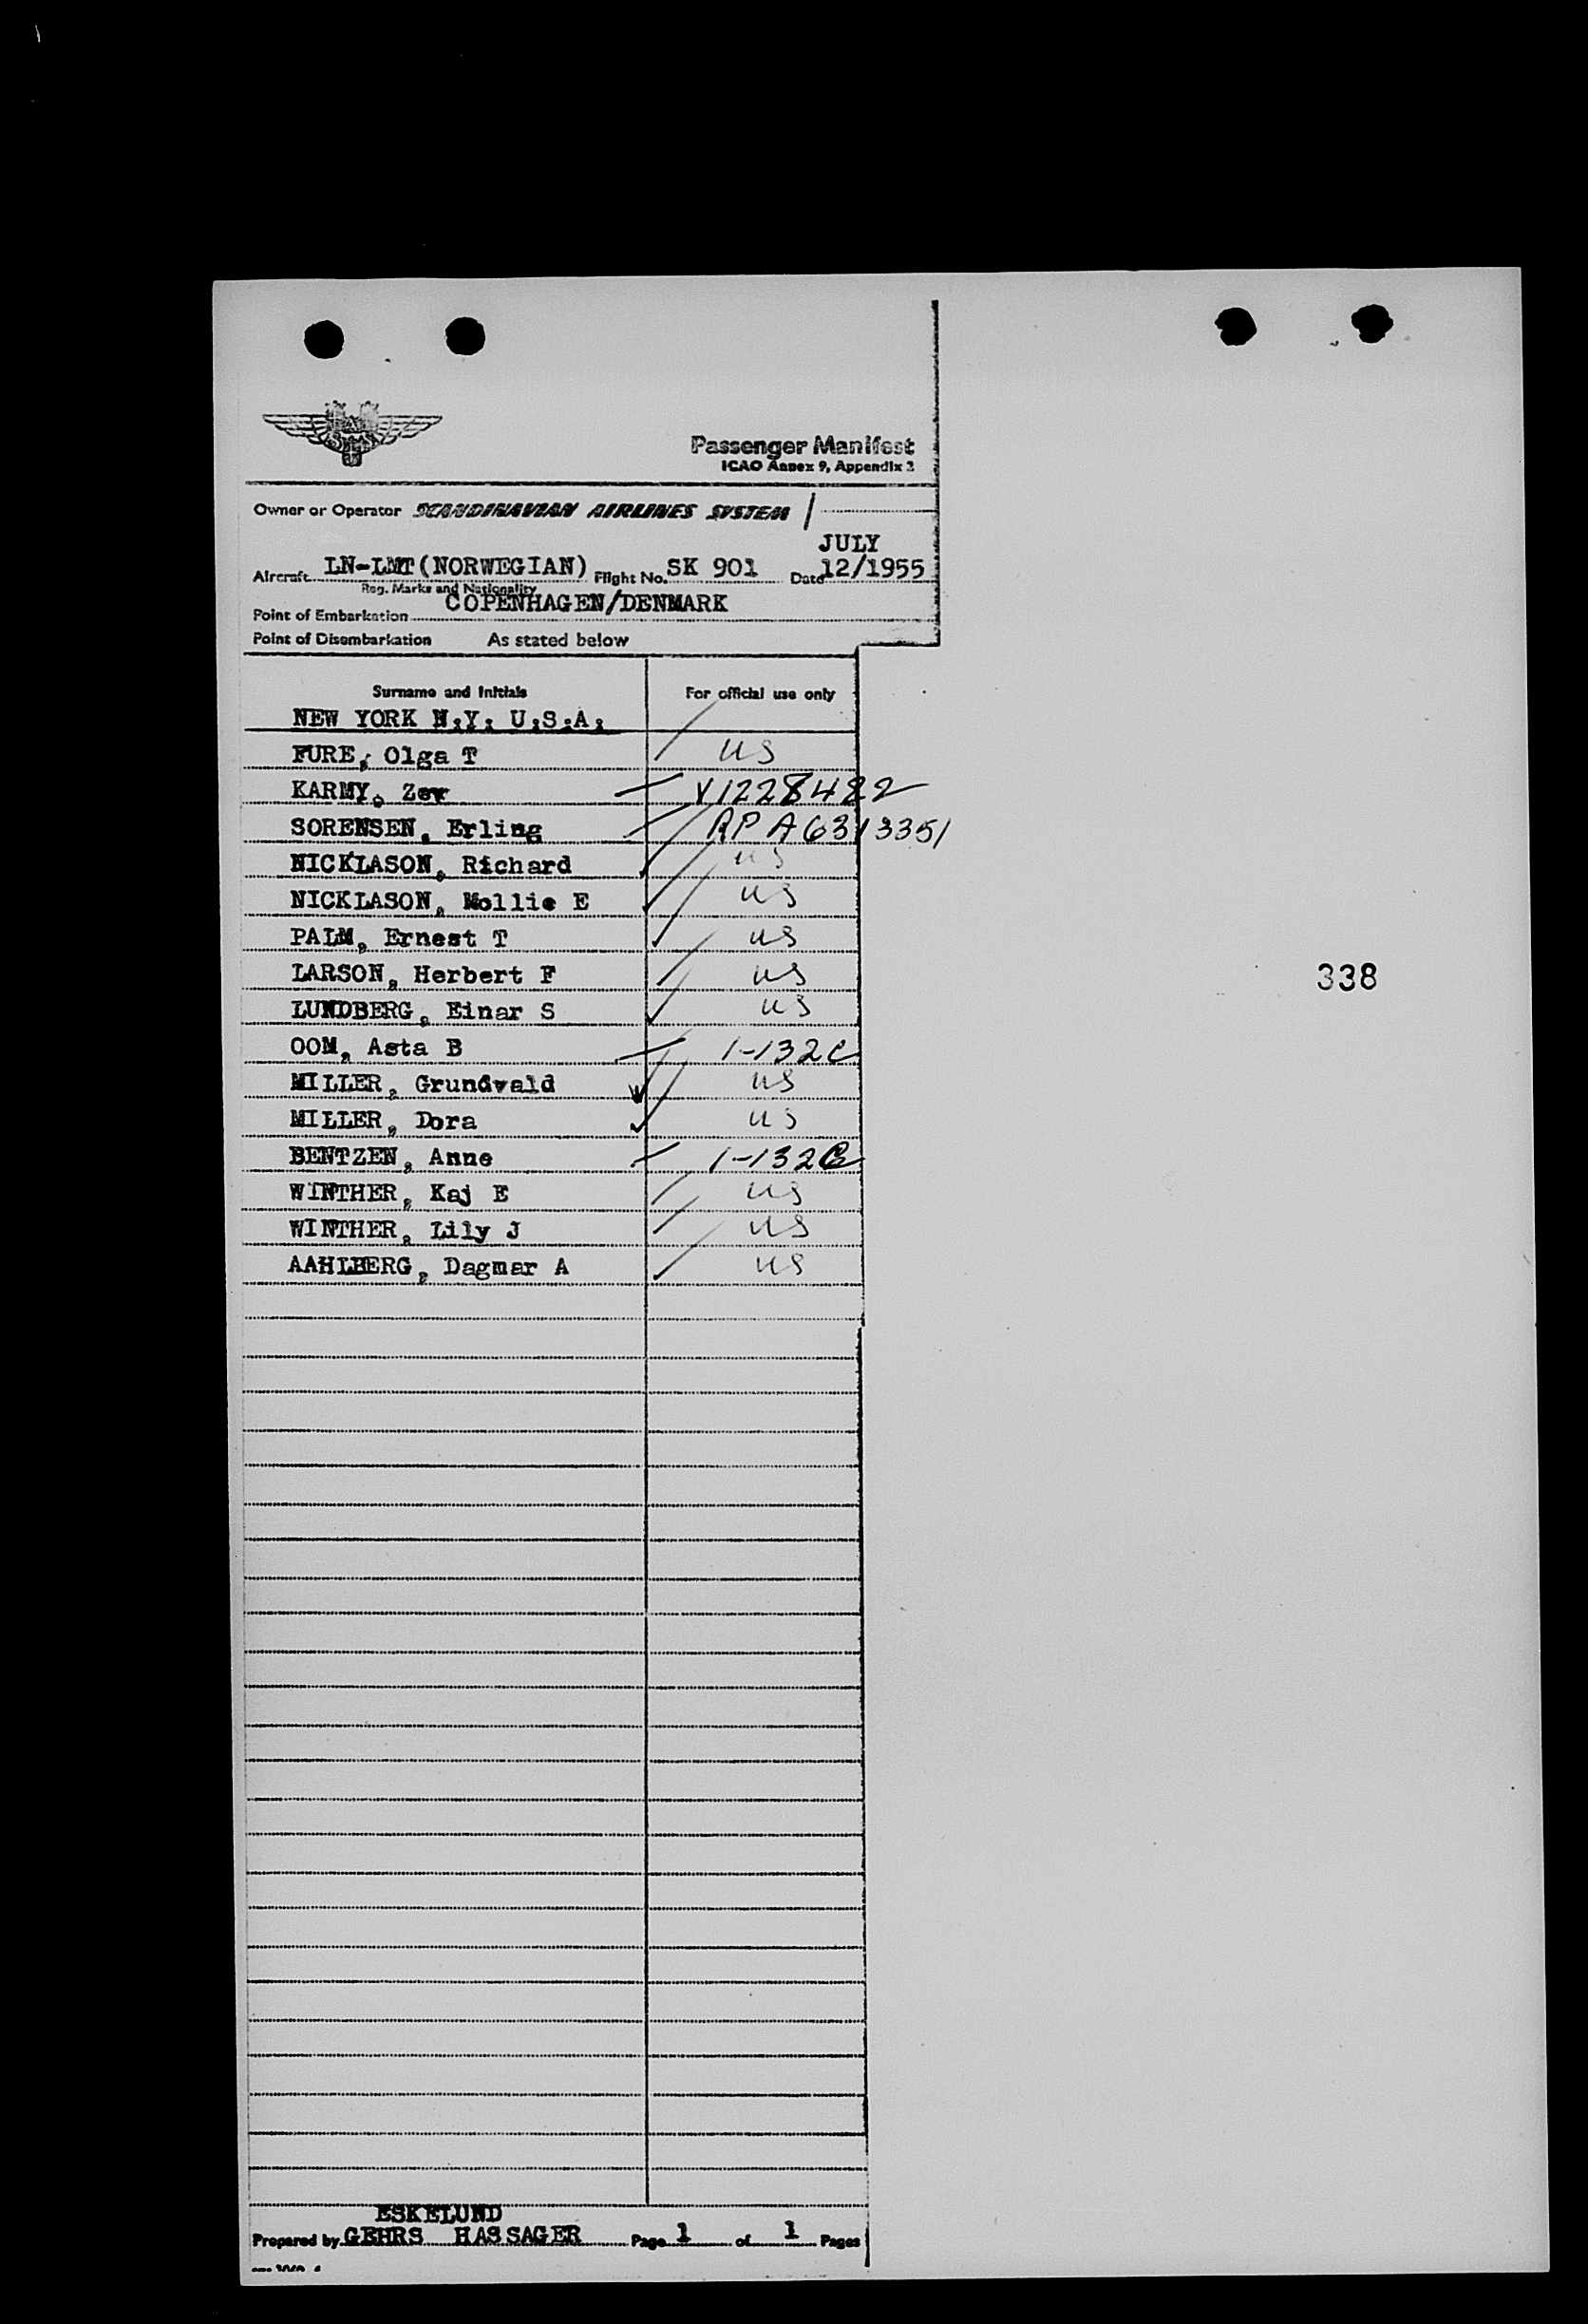 Passenger Manifest
ICAO Annex 9, Appendix 2
Owner or Operator SCANDINAVIAN AIRLINES SYSTEM
JULY
Aircraft LN-LMT(NORWEGIAN) Flight No. SK 901 Date 12/1955
Reg. Marks and Nationality
Point of Embarkation COPENHAGEN/DENMARK
Point of Disembarkation As stated below
Surname and Initials For official use only
NEW YORK N.Y. U.S.A.
FURE, Olga T US
KARMY, Zev V1228482
SORENSEN, Erling RP A6313351
NICKLASON, Richard US
NICKLASON, Mollie E US
PALM, Ernest T US
LARSON, Herbert F US
338
LUNDBERG, Einar S US
OOM, Asta B 1-132C
MILLER, Grundvald US
MILLER, Dora US
BENTZEN, Anne 1-132B
WINTHER, Kaj E US
WINTHER, Lily J US
AAHLBERG, Dagmar A US
ESKELUND
Prepared by GEHRS HASSAGER Page 1 of 1 Pages